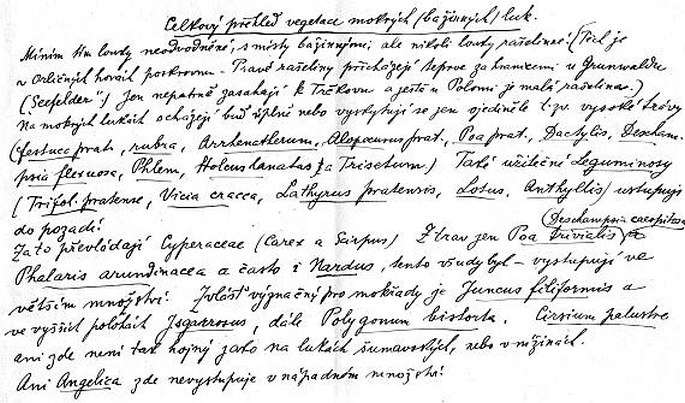 Celkový přehled vegetace mokrých (bažinných) luk.
Míním tím louky neodvodněné, s místy bažinnými; ale nikoli louky rašelinné! (Těch je
v Orlických horách poskrovnu – Pravé rašeliny přicházejí teprve za hranicemi u Grunwaldu
("Seefelder") jen nepatrně zasahají k Trčkovu a ještě u Polomi je malá rašelina.)
Na mokrých lukách scházejí buď úplně nebo vyskytují se jen ojediněle t.zv. vysoké trávy
(festuca prat., rubra, Arrhenatherum, Alopecurus prat., Poa prat., Dactylis, Descham-
psia flexuosa, Phlem, Holcus lanatus, a Trisetum.) Také užiteční Leguminosy
(Trifol. pratense, Vicia cracca, Lathyrus pratensis, Lotus, Anthyllis) ustupují
do pozadí!
(Deschampsia caespitosa
Za to převládají Cyperaceae (Carex a Scirpus) Z trav jen Poa trivialis a
Phalaris arundinacea a často i Nardus, tento všudybyl – vystupují ve
větším množství! Zvlášť význačný pro mokřady je Juncus filiformis a
ve vyšších polohách J. sqarrosus, dále Polygonum bistorta. Cirsium palustre
ani zde není tak hojný jako na lukách šumavských, nebo v nížinách.
Ani Angelica zde nevystupuje v nápadném množství!